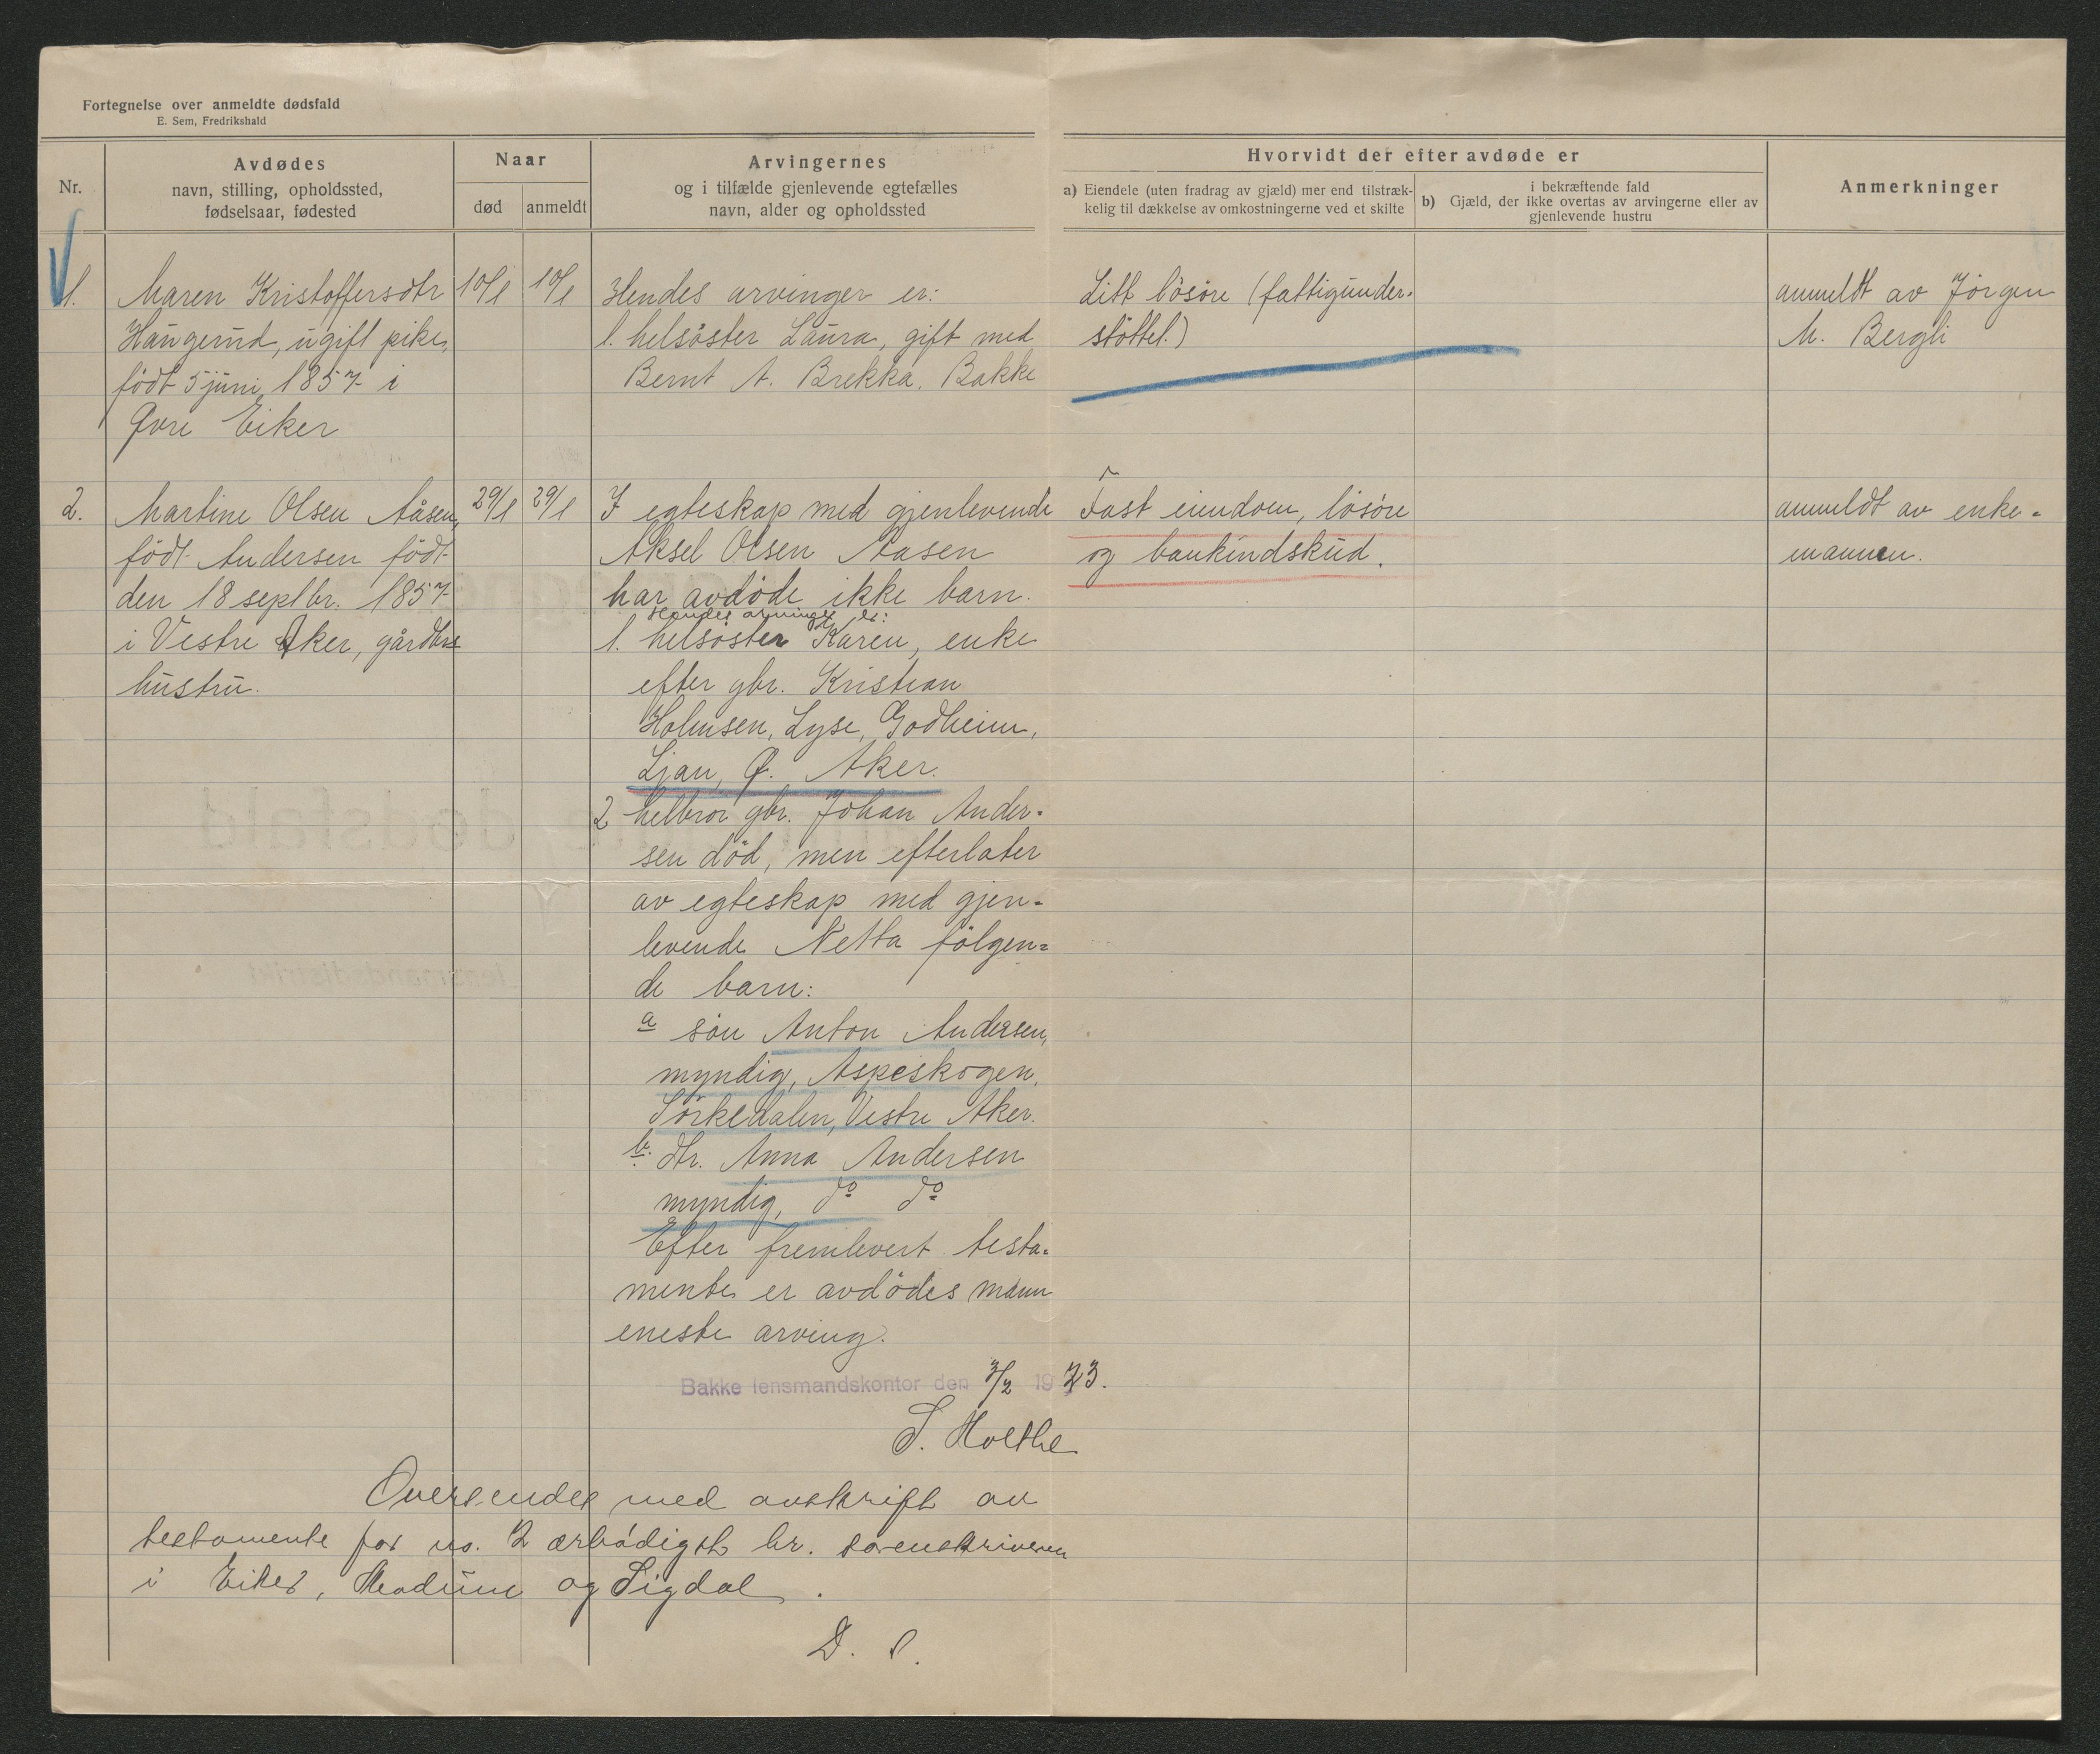 Fortegnelse over anmeldte dødsfald
E. Sem, Fredrikshald
Nr.
Avdødes
navn, stilling, opholdssted,
fødselsaar, fødested
Naar
død
anmeldt
Arvingernes
og i tilfælde gjenlevende egtefælles
navn, alder og opholdssted
Hvorvidt der efter avdøde er
a) Eiendele (uten fradrag av gjæld) mer end tilstræk-
kelig til dækkelse av omkostningerne ved et skifte
i bekræftende fald
b) Gjæld, der ikke overtas av arvingerne eller av
gjenlevende hustru
Anmerkninger
1.
Maren Kristoffersdtr
Haugerud, ugift pike,
født 5 juni 1857 i
Øvre Eiker
10/1
10/1
Hendes arvinger er:
1. helsøster Laura, gift med
Bernt A. Brekka, Bakke
Litt løsøre (fattigunder-
støttet.)
anmeldt av Jørgen
M. Bergli
2.
Martine Olsen Aåsen,
født Andersen født
den 18 septbr. 1857
i Vestre Aker, gårdbrs
hustru.
29/1
29/1
I egteskap med gjenlevende
Aksel Olsen Aasen
har avdøde ikke barn.
Hendes arvinger er:
1. helsøster Karen, enke
efter gbr. Kristian
Holmsen, Lyse, Godheim,
Ljan, Ø. Aker.
2 helbror gbr. Johan Ander-
sen død, men efterlater
av egteskap med gjen-
levende Netta følgen-
de barn:
a søn Anton Andersen,
myndig, Aspeskogen,
Sørkedalen, Vestre Aker.
b. dtr. Anna Andersen
myndig, do do
Efter fremlevert testa-
mente er avdødes mann
eneste arving.
Fast eiendom, løsøre
og bankindskud.
anmeldt av enke-
mannen.
Bakke lensmandskontor den 3/2 1923.
S. Hoelthe
Oversendes med avskrift av
testamente for no. 2 ærbødigst hr. sorenskriveren
i Eiker, Modum og Sigdal.
D. S.